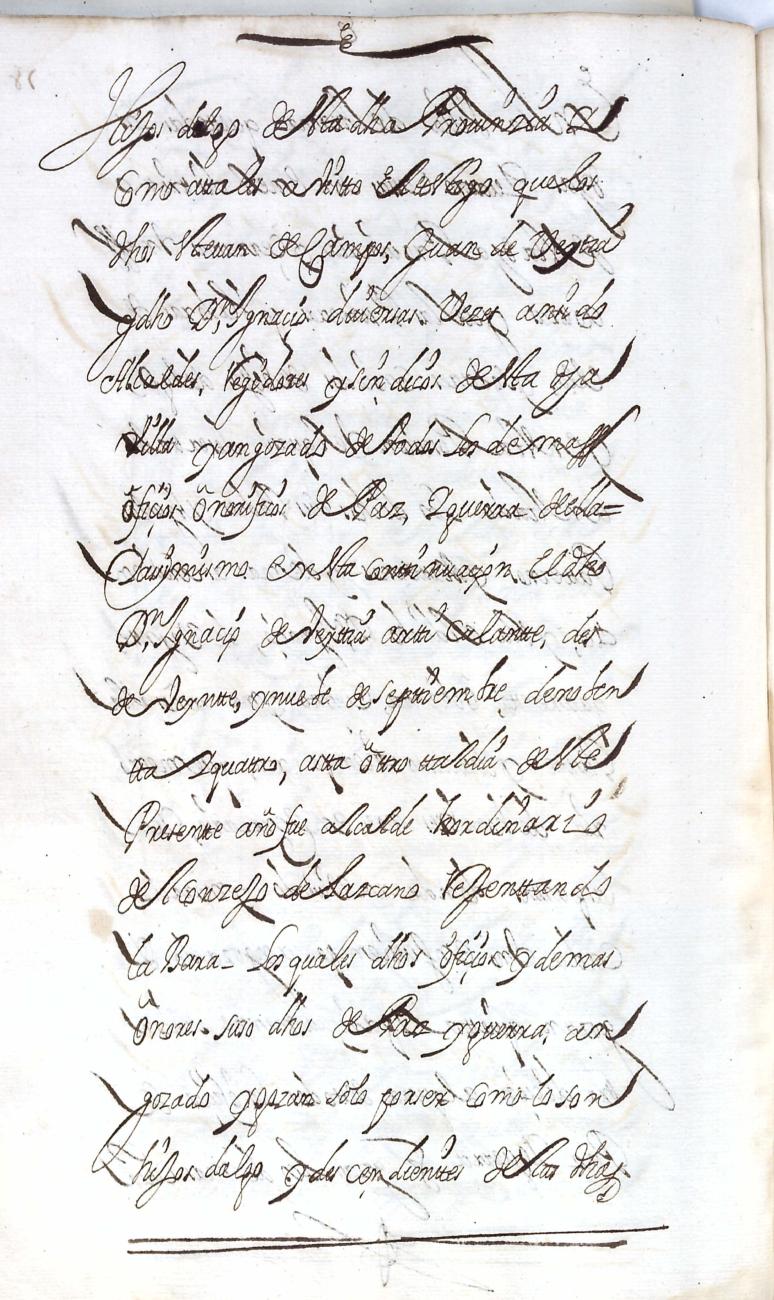 Hijos dalgo de Sta dha Provinzia Y
Como a tales
dhos Stevan de Campos, Juan de Veytia
y dho Dn Ignacio diversas Vezes an sido
Alcaldes, Regidores y sindicos de Sta dha
Villa y an gozado de todos los demass
ofiçios onorificos de Paz, Y guerra della=
asimismo en Sta Continuaçion El dho
Dn Ignaçio de Veytia arttiCalantte, des
de Veyntte, y nuebe de septtiembre, de noben
tta Y quattro, astta otro ttal dia de Stte
Presentte año fue alcalde hordinario
del Conzejo de Lazcano Repsenttando
la Bara_ Los quales dhos ofiçios y demas
onores suso dhos de Paz y guerra, an
gozado y gozan solo por ser como lo son
hijos dalgo y descendienttes de Las dhas